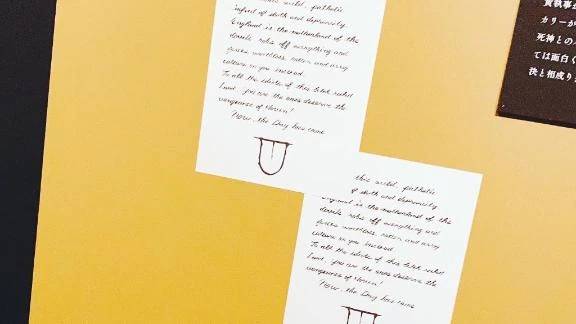 wild, pathetic
of sloth and depravity.
England is the motherland of the
devils, robs off everything and
worthless, rotten and angry
culture in you instead.
To all the idiots of this
land, you are the ones deserve the
vengeance of
Now, the Day has come
this wild, pathetic
of sloth and depravity.
England is the motherland of the
devils, robs off everything and
worthless, rotten and angry
culture in you instead.
To all the idiots of this
land, you are the ones deserve the
vengeance of
Now, the Day has come
執事
カリーが
死神との
ては面白く
決と相成り